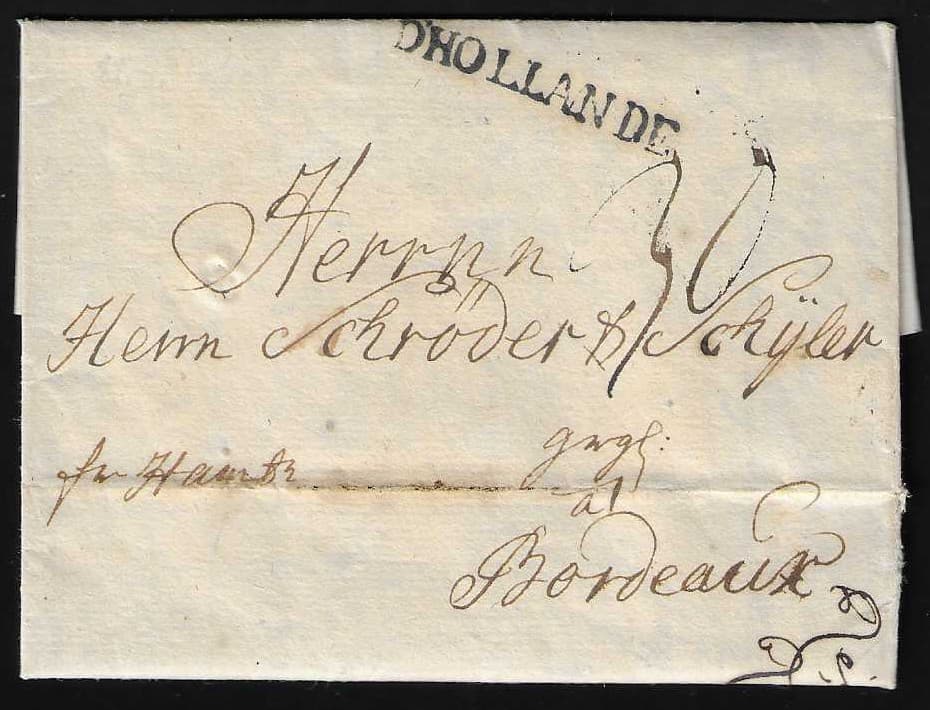 D'HOLLANDE
30
Herrnn
Herrn Schröder & Schÿler
fr Hamb
à
Bordeaux